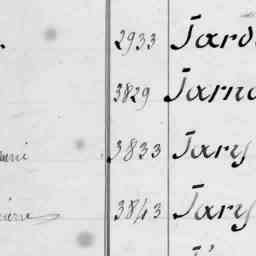 2933 Jard
3829 Jarna
3833 Jary
3843 Jary